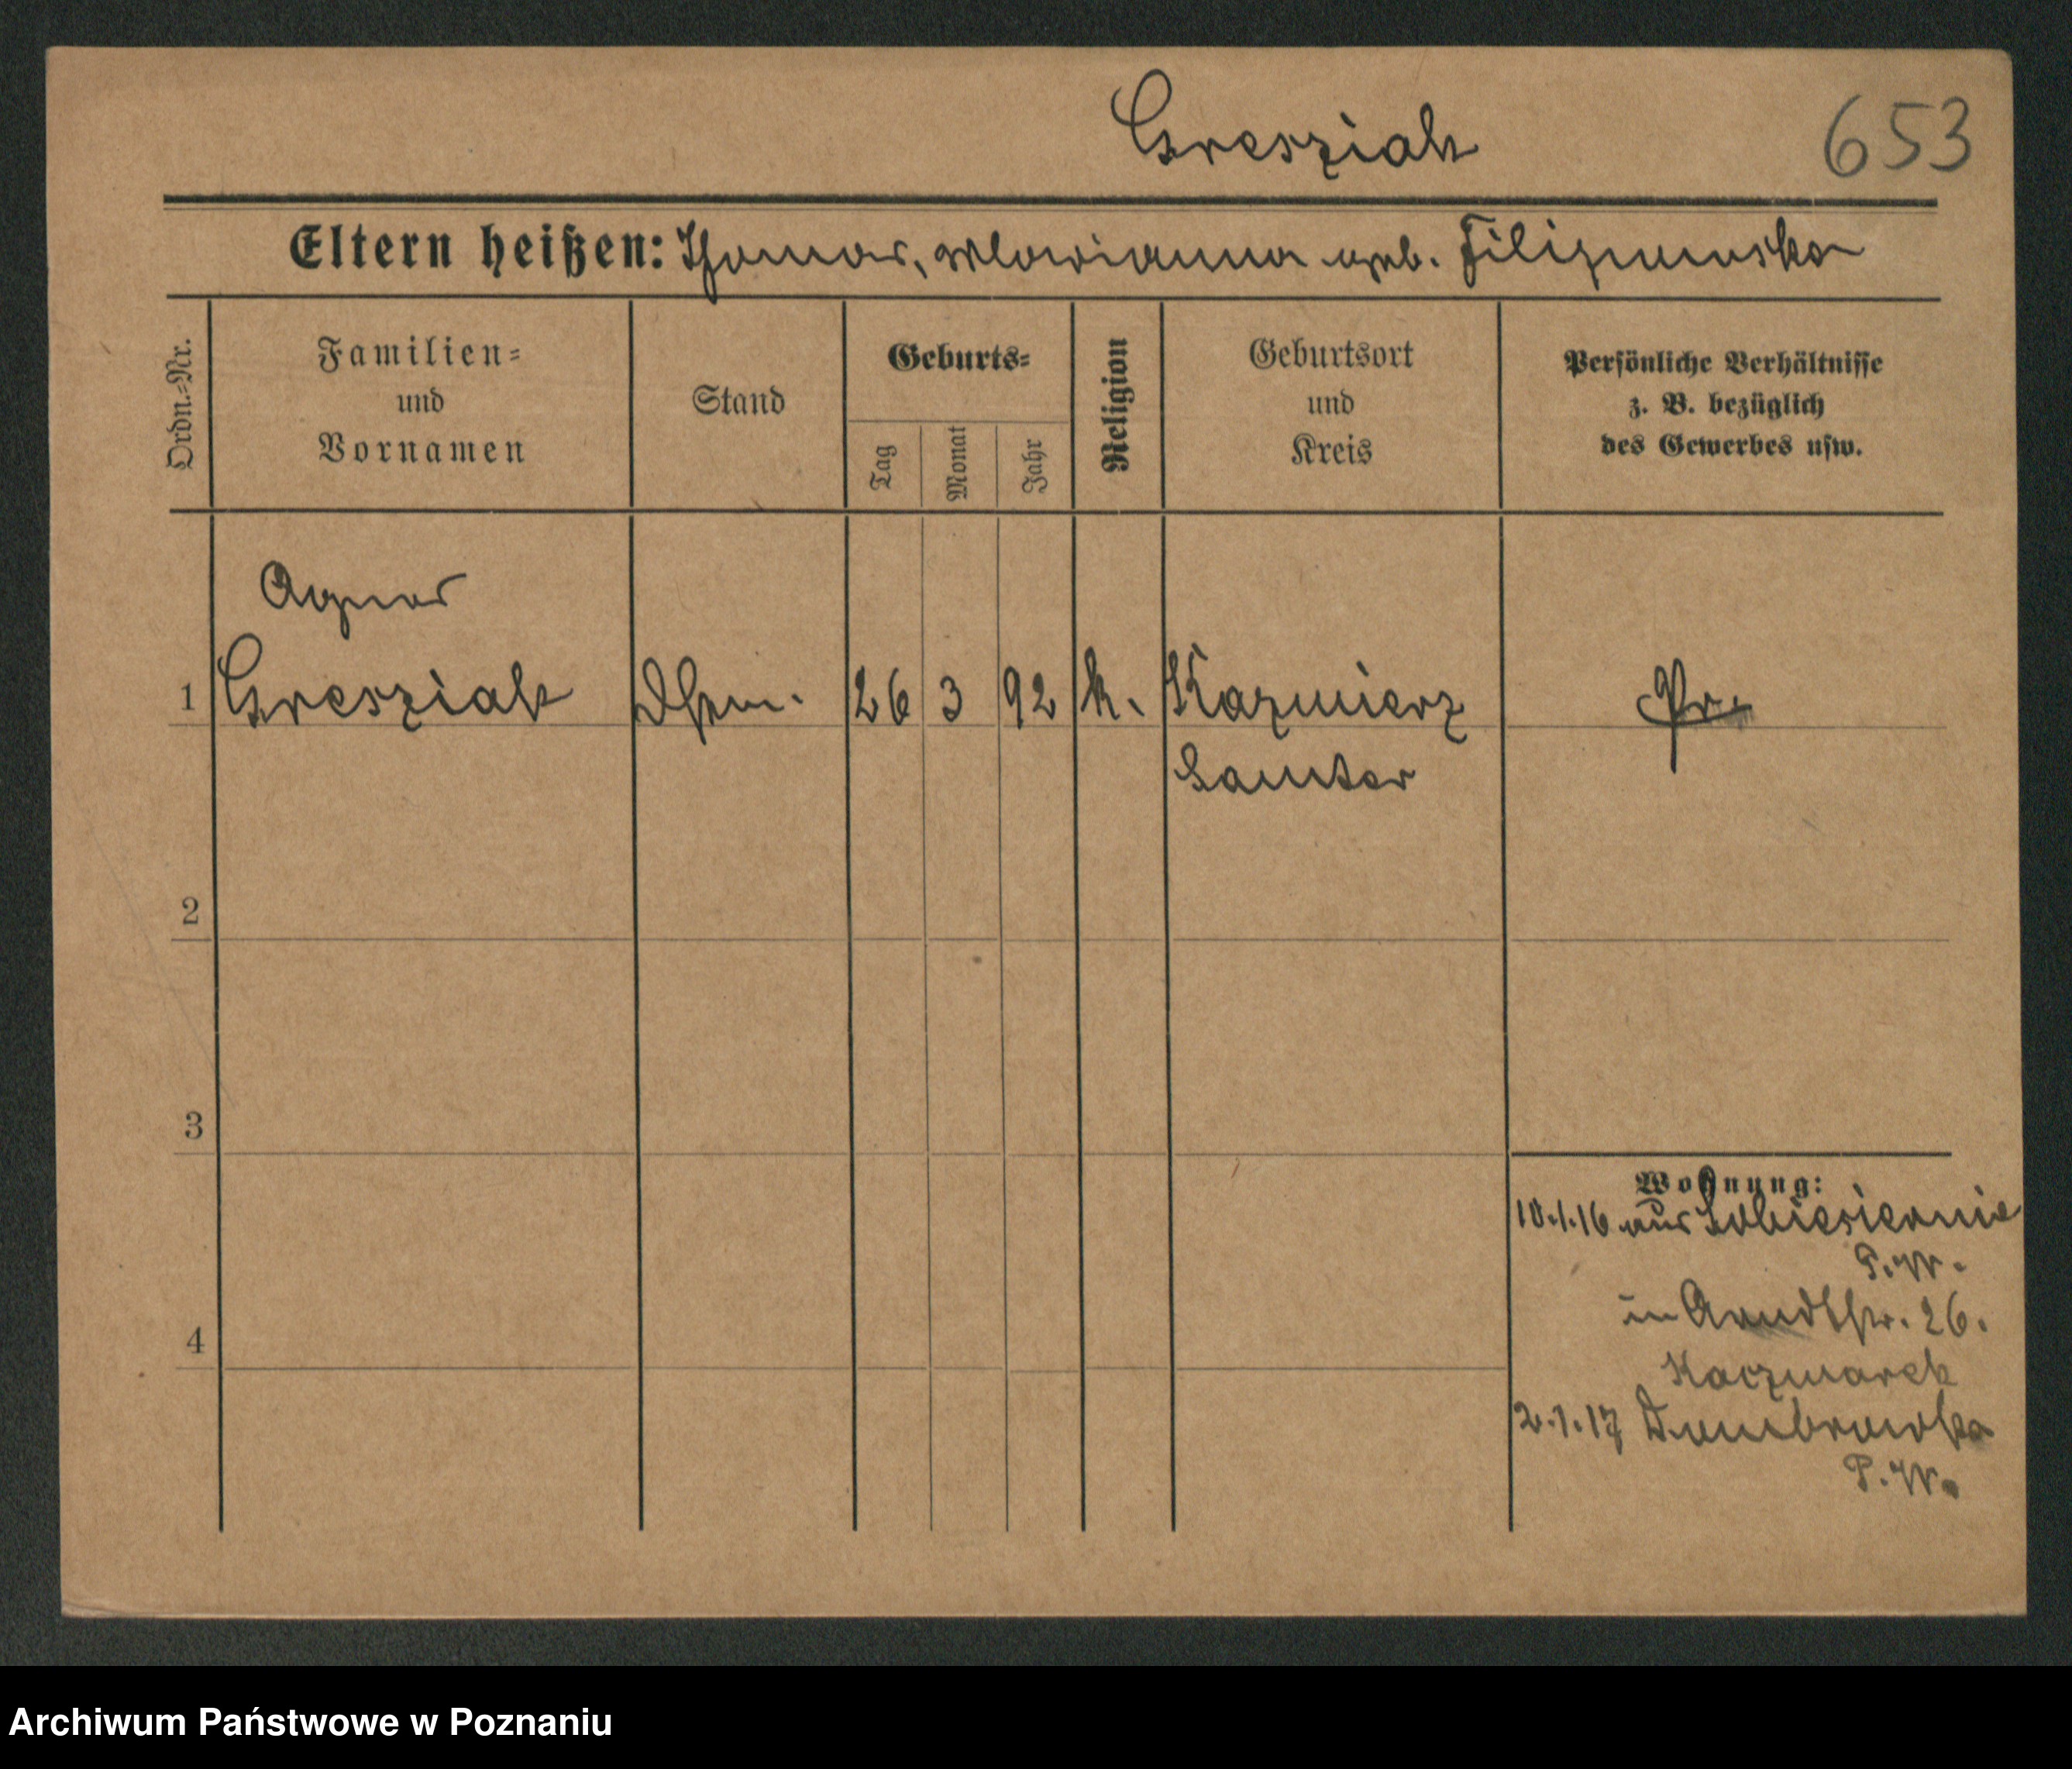 Gresziak
653
Eltern heißen: Thomas, Marianna geb. Filipowska
Ordn.=Nr.
Familien=
und
Vornamen
Stand
Geburts=
Tag
Monat
Jahr
Religion
Geburtsort
und
Kreis
Persönliche Verhältnisse
z. B. bezüglich
des Gewerbes usw.
Agnes
1 Gresziak 26 3 92 k. Kazmierz Pr.
Samter
2
3
Wohnung:
10.1.16 aus Sobiesiernie
P.W.
in Arndtstr. 26.
4
Kaczmarek
2.1.17 Dombrowka
P.W.
Archiwum Państwowe w Poznaniu